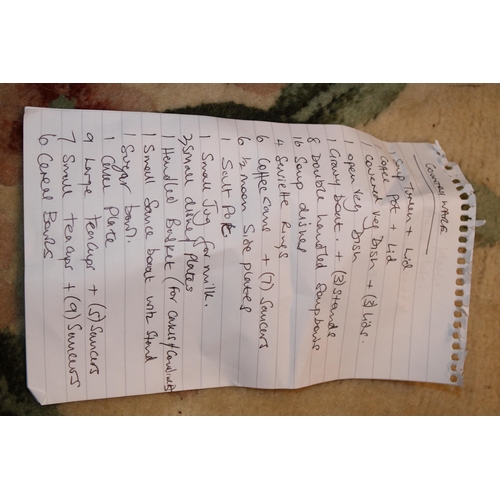 COUNTRY WARE
1 Soup Tureen + Lid
1 Coffee Pot + Lid
1 covered veg Dish + (3) Lids.
1 open veg Dish
1 Gravy boat. + (3) Stands
8 Double handled Soup bowls
16 Soup dishes
4 Serviette Rings
6 Coffee cans + (7) Saucers
6 ½ moon Side plates
1 Salt Pot
1 Small Jug for milk.
2 Small dishes/plates
1 Handled Basket (for Cakes/
1 Small Sauce boat with Stand
1 Sugar bowl.
1 Cake Plate
9 Large Teacups + (5) Saucers
7 Small teacups + (9) Saucers
6 Cereal Bowls